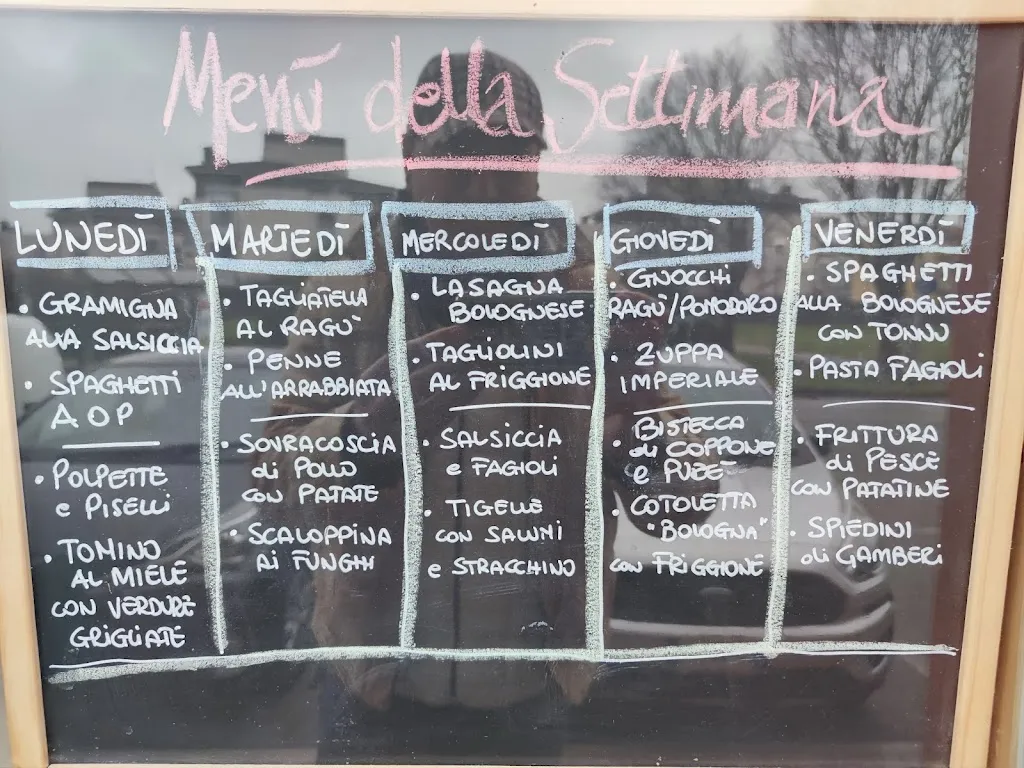 Menù della Settimana
LUNEDÌ
• GRAMIGNA
ALLA SALSICCIA
• SPAGHETTI
A O P
• POLPETTE
e PISELLI
• TOMINO
AL MIELE
CON VERDURE
GRIGLIATE
MARTEDÌ
• TAGLIATELLA
AL RAGU'
• PENNE
ALL'ARRABBIATA
• SOVRACOSCIA
di POLLO
CON PATATE
• SCALOPPINA
AI FUNGHI
MERCOLEDÌ
• LASAGNA
BOLOGNESE
• TAGLIOLINI
AL FRIGGIONE
• SALSICCIA
e FAGIOLI
• TIGELLE
CON SALUMI
e STRACCHINO
GIOVEDÌ
• GNOCCHI
RAGÙ/POMODORO
• ZUPPA
IMPERIALE
• BISTECCA
di COPPONE
e PURE'
• COTOLETTA
"BOLOGNA"
CON FRIGGIONE
VENERDÌ
• SPAGHETTI
ALLA BOLOGNESE
CON TONNO
• PASTA FAGIOLI
• FRITTURA
di PESCE
CON PATATINE
• SPIEDINI
di GAMBERI